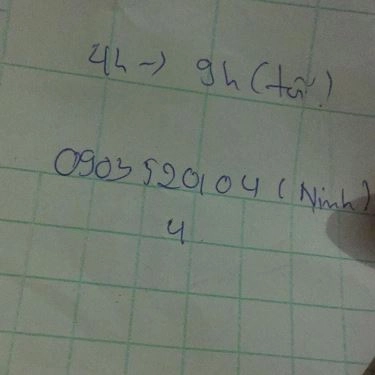 4h → 9h (tối)
0903520104 (Ninh)
4